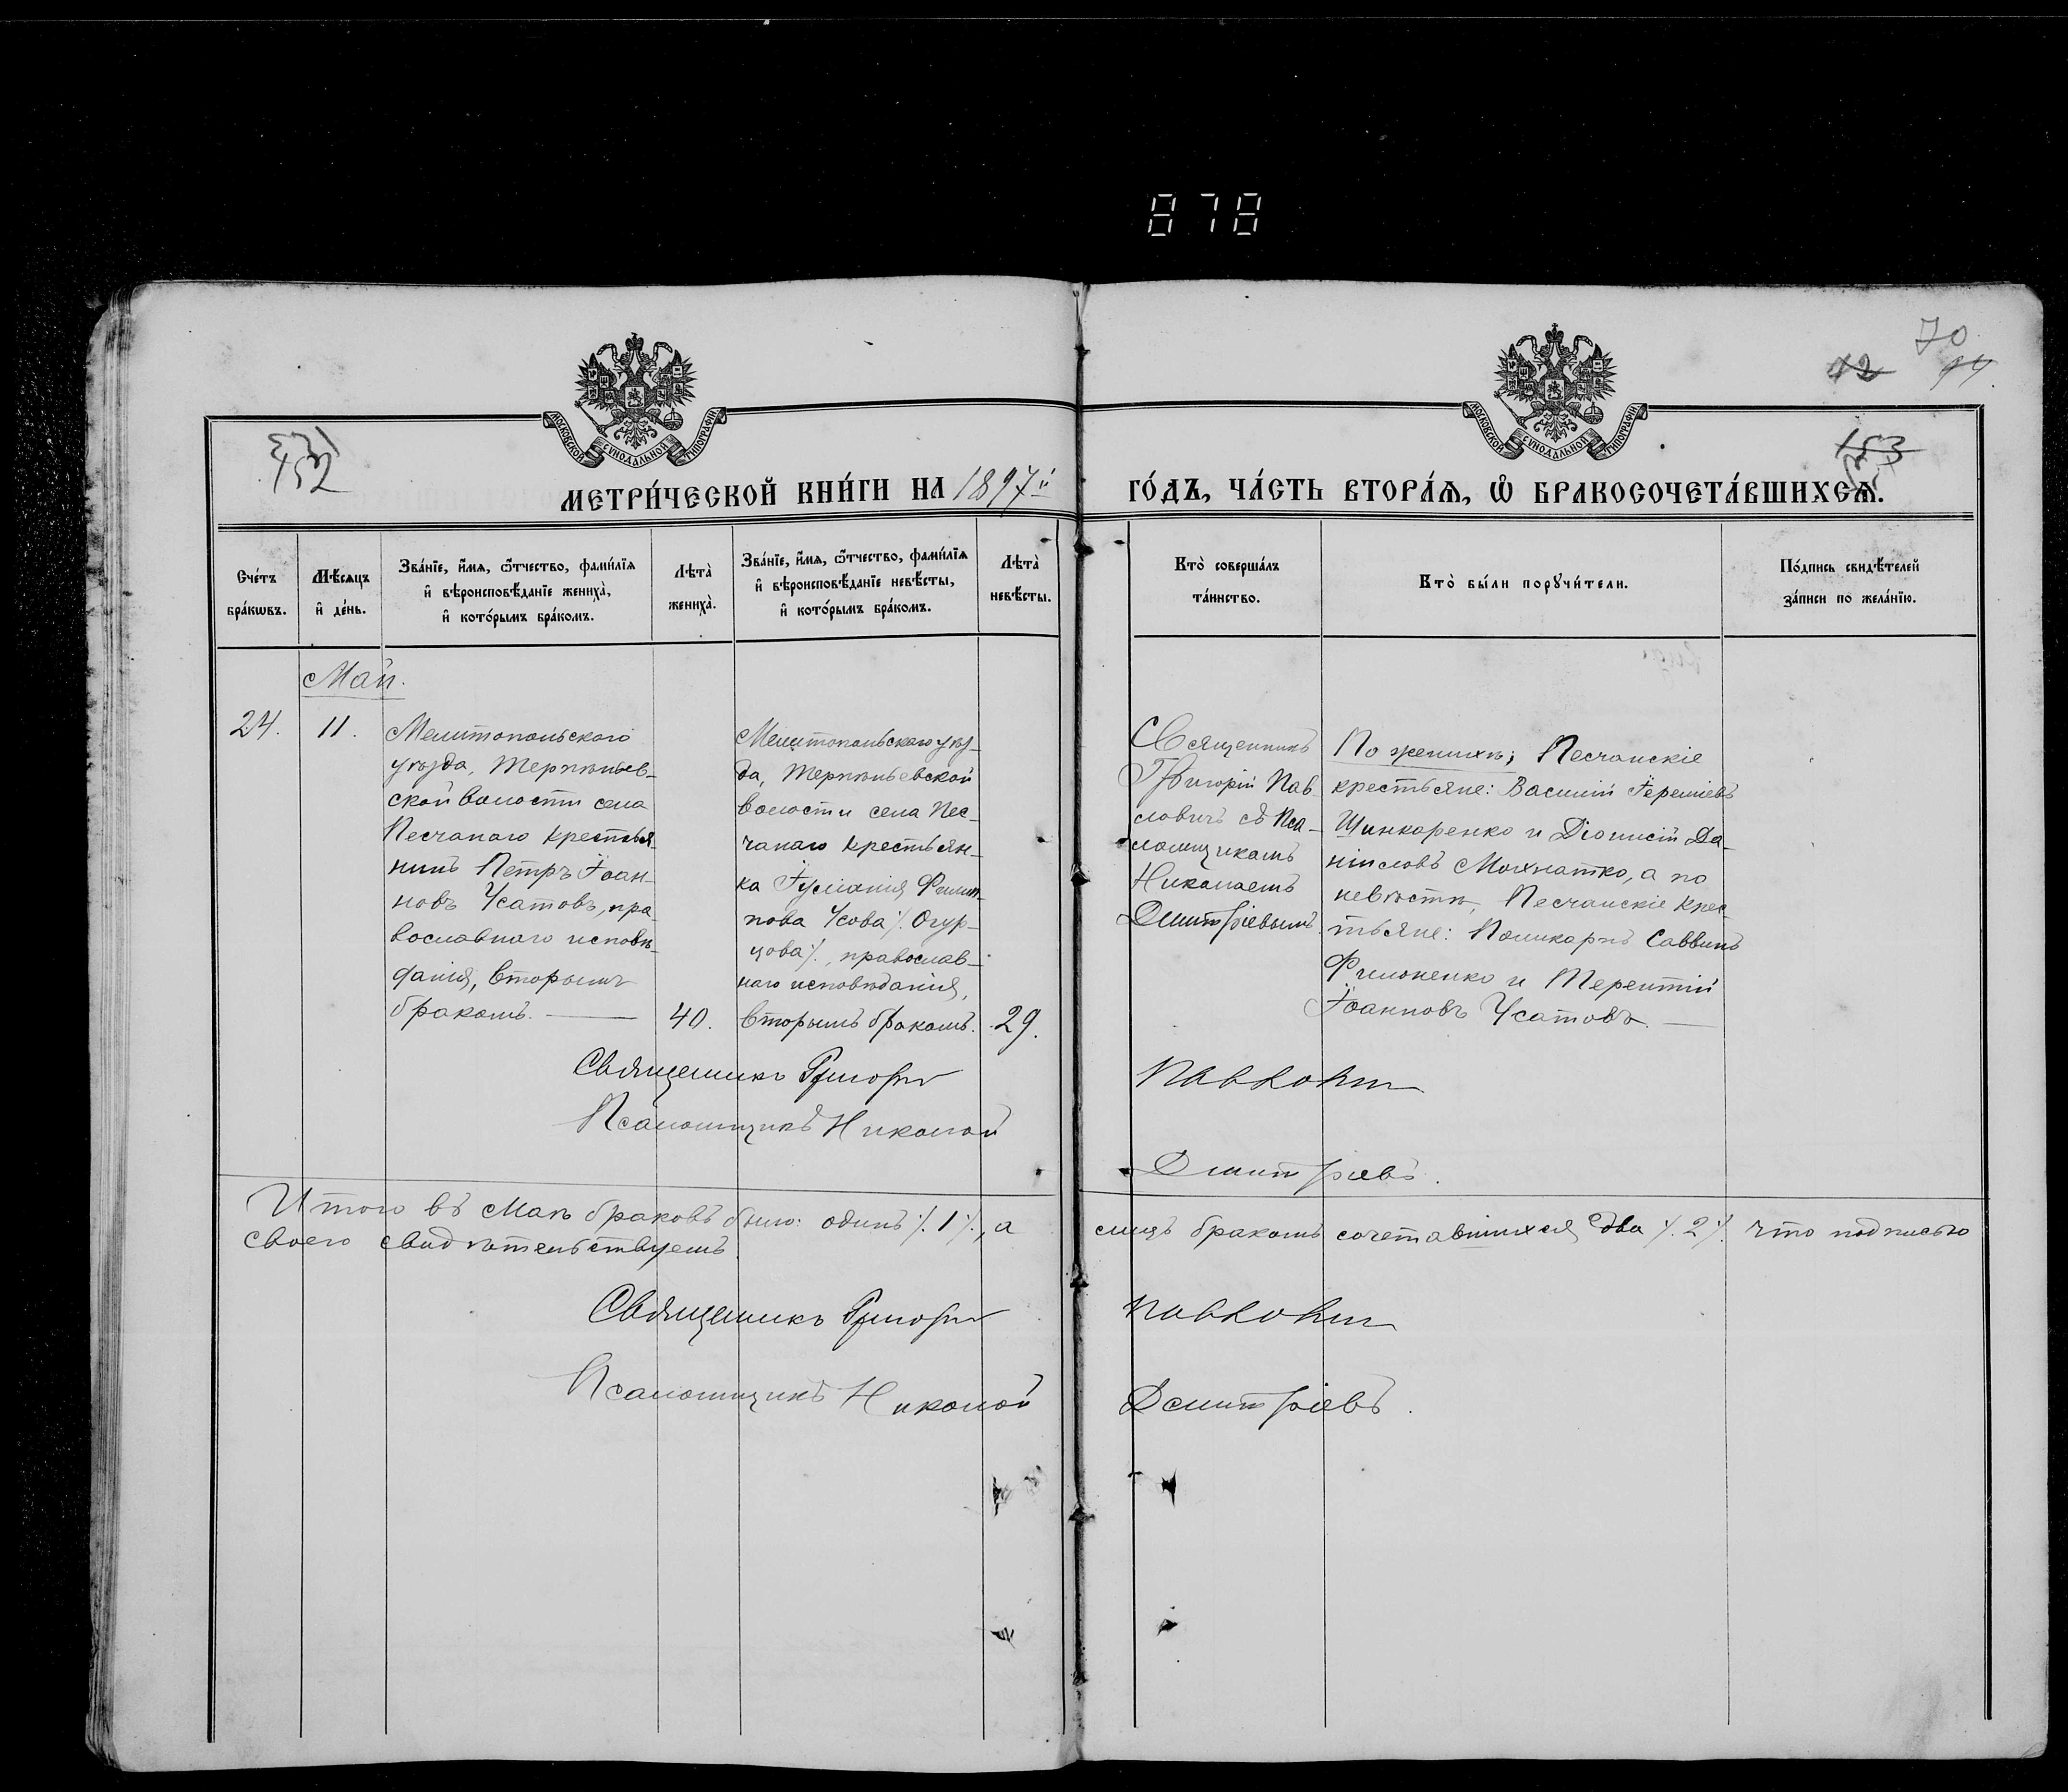 878
70
12 94
153
152
МОСКОВСКОЙ СУНОДАЛЬНОЙ ТИПОГРАФІИ
МОСКОВСКОЙ СУНОДАЛЬНОЙ ТИПОГРАФІИ
МЕТРИ́ЧЕСКОЙ КНИ́ГИ НА 1897й ГО́ДЪ, ЧА́СТЬ ВТОРА́Я, Ѿ БРАКОСОЧЕТА́ВШИХСЯ.
Сче́тъ
бра́кωвъ.
Мѣ́сяцъ
и҆ де́нь.
Зва́нїе, и҆́мя, ѻ҆́тчество, фами́лїя
и҆ вѣроисповѣ́данїе жениха̀,
и҆ кото́рымъ бра́комъ.
Лѣта̀
жениха̀.
Зва́нїе, и҆́мя, ѻ҆́тчество, фами́лїя
и҆ вѣроисповѣ́данїе невѣ́сты,
и҆ кото́рымъ бра́комъ.
Лѣта̀
невѣ́сты.
Кто̀ соверша́лъ
та́инство.
Кто̀ бы́ли порꙋчи́тели.
По́дпись свидѣ́телей
за́писи по жела́нїю.
Май.
24.
11.
Мелитопольскаго
уѣзда, Терпѣньев-
ской волости села
Песчанаго крестья-
нинъ Петръ Іоан-
новъ Усатовъ, пра-
вославнаго исповѣ-
данія, вторымъ
бракомъ.
40.
Мелитопольскаго уѣз-
да, Терпѣньевской
волости села Пес-
чанаго крестьян-
ка Іуліанія Филип-
пова Усова ·/. Огур-
цова ·/., православ-
наго исповѣданія,
вторымъ бракомъ.
29.
Священникъ
Григорій Пав
ловичъ съ Пса-
ломщикомъ
Николаемъ
Дмитріевымъ.
По женихѣ; Песчанскіе
крестьяне: Василій Іереміевъ
Шинкаренко и Діонисій Да-
ніиловъ Мохнатко, а по
невѣстѣ, Песчанскіе крес-
тьяне: Поликарпъ Саввинъ
Филоненко и Терентій
Іоанновъ Усатовъ.
Священникъ Григорій Павловичъ
Псаломщикъ Николай Дмитріевъ.
Итого въ Маѣ браковъ было: одинъ ·/. 1 ·/., а лицъ бракомъ сочетавшихся два ·/. 2 ·/. что подписью
своею свидѣтельствуемъ.
Священникъ Григорій Павловичъ
Псаломщикъ Николай Дмитріевъ.